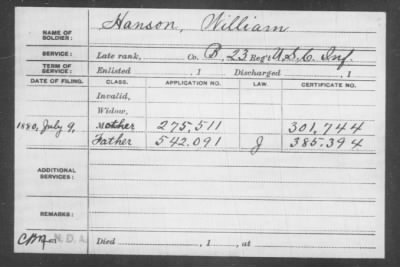 NAME OF SOLDIER: Hanson, William
SERVICE: Late rank, Co. B, 23 Reg't U.S.C. Inf.
TERM OF SERVICE: Enlisted , 1 Discharged , 1
DATE OF FILING. CLASS. APPLICATION NO. LAW. CERTIFICATE NO.
Invalid,
Widow,
Mother 275,511 301,744
1880, July 9, Father 542.091 J 385.394
ADDITIONAL SERVICES:
REMARKS:
N.D.A. Died , 1 , at